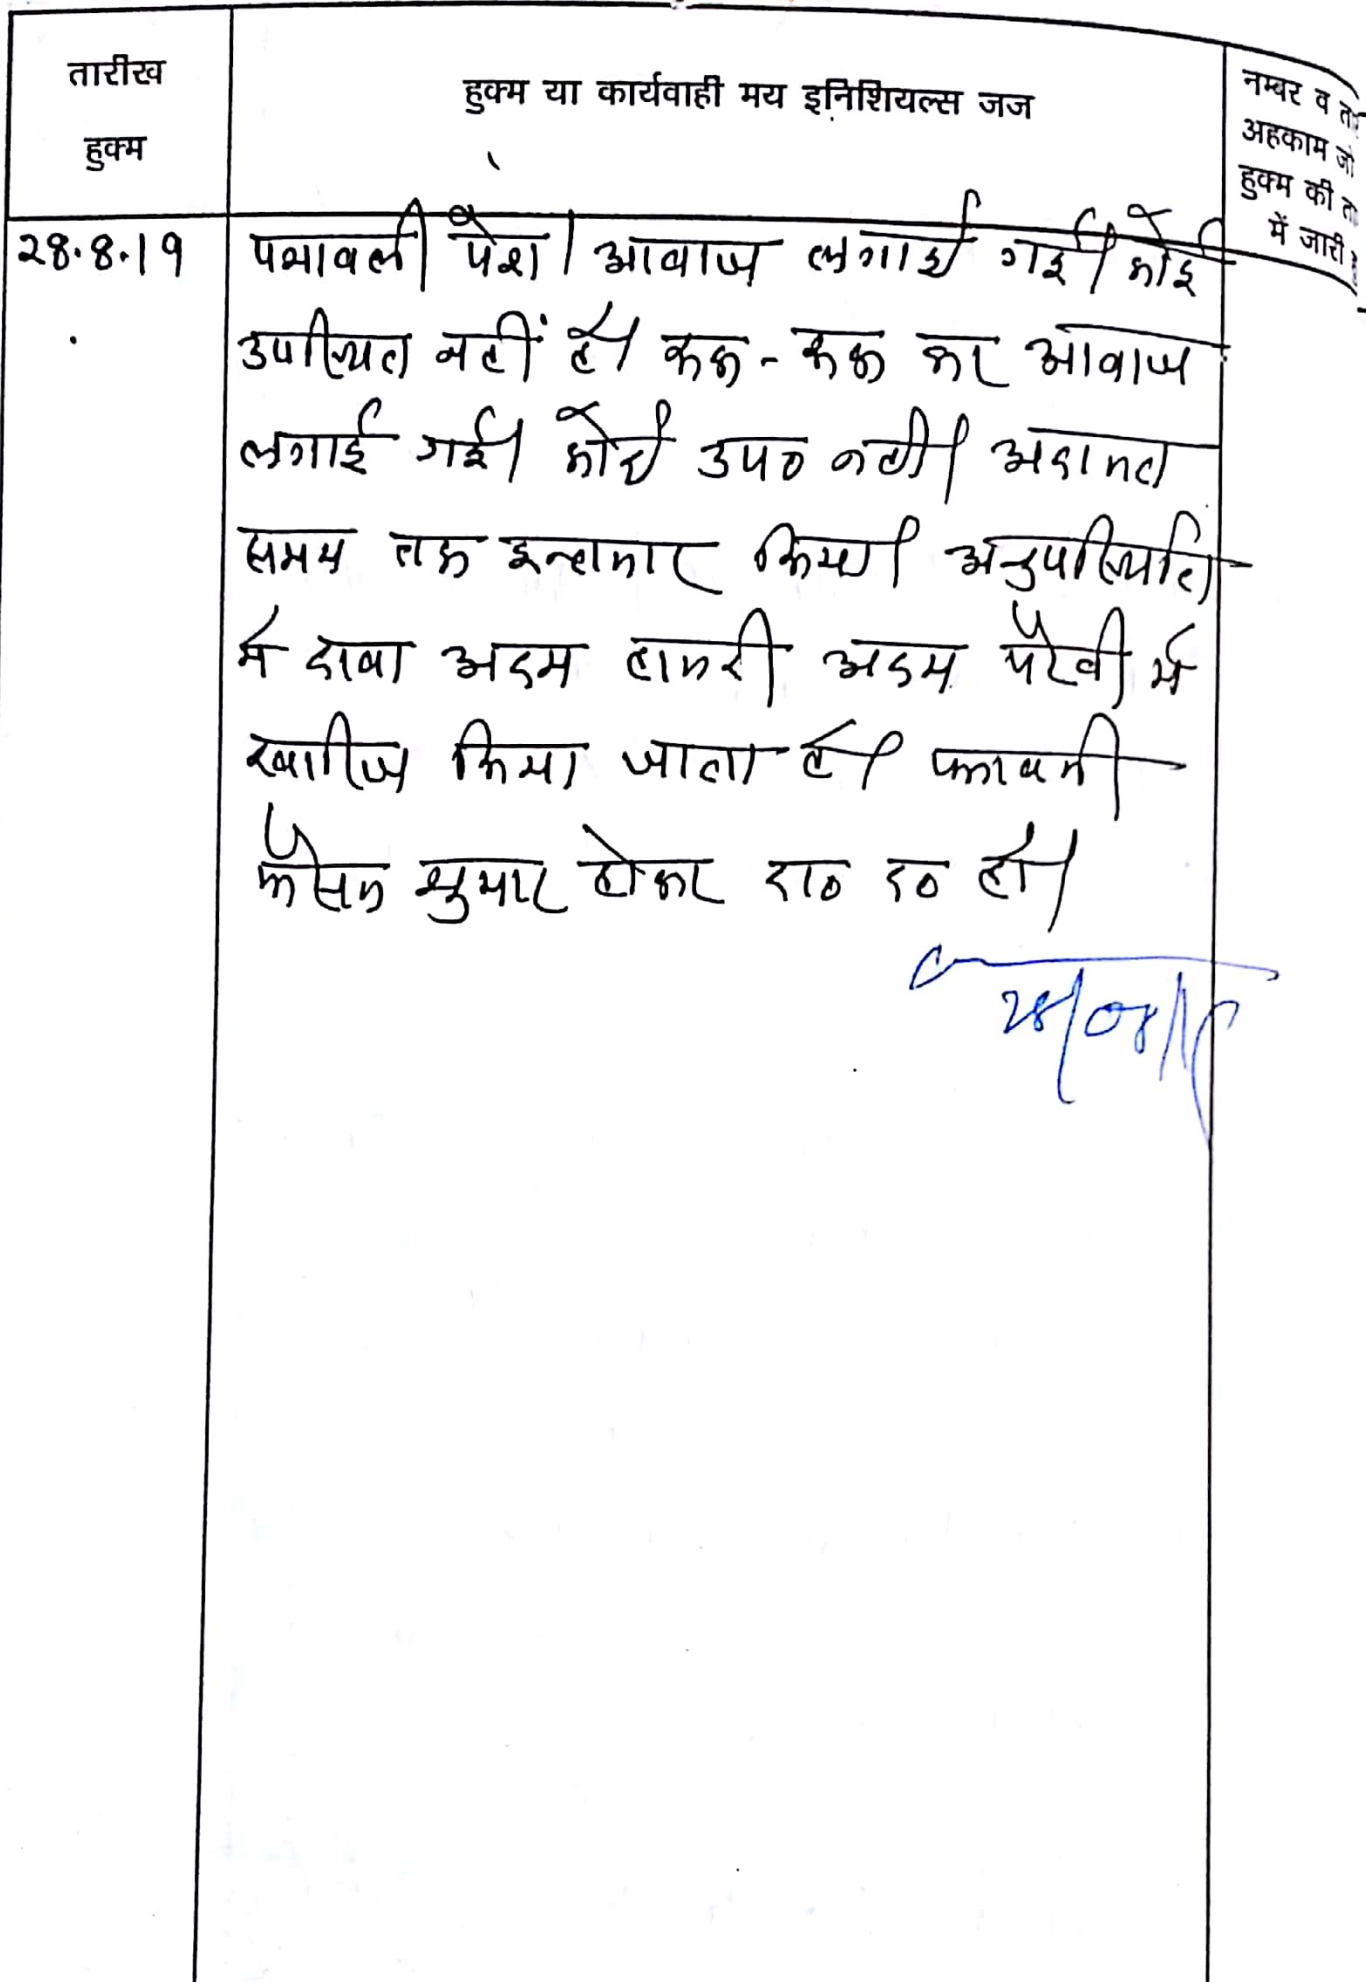 तारीख
हुक्म
हुक्म या कार्यवाही मय इनिशियल्स जज
नम्बर व
अहकाम जो
हुक्म की
में जारी
28.8.19
पत्रावली पेश। आवाज लगाई गई। कोई
उपस्थित नहीं है। रूक - रूक कर आवाज
लगाई गई। कोई उप० नही। अदालत
समय तक इन्तजार किया। अनुपस्थिति
में दावा अदम हाजरी अदम पैरवी में
खारिज किया जाता है। पत्रावली
फैसल शुमार होकर दा० द० हो।
28/08/19